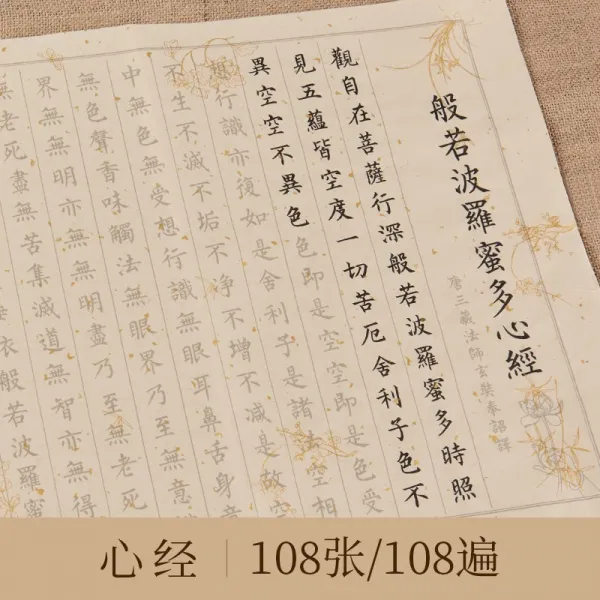 般若波羅蜜多心經
唐三藏法師玄奘奉詔譯
觀自在菩薩行深般若波羅蜜多時照
見五蘊皆空度一切苦厄舍利子色不
異空空不異色色即是空空即是色受
想行識亦復如是舍利子是諸法空相
不生不滅不垢不净不增不减是故空
中無色無受想行識無眼耳鼻舌身意
無色聲香味觸法無眼界乃至無意
界無無明亦無無明盡乃至無老死
無老死盡無苦集滅道無智亦無得
般若波羅蜜
心经 108张/108遍